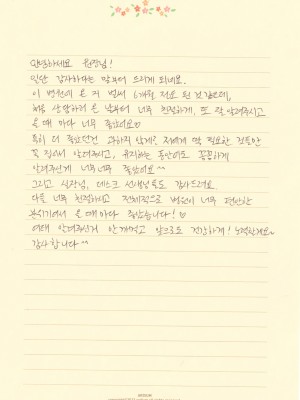 안녕하세요 원장님!
일단 감사하다는 말부터 드리게 되네요.
이 병원에 온 거 벌써 6개월 정도 된 것 같은데,
처음 상담하러 온 날부터 너무 친절하게, 또 잘 알려주시고
올 때 마다 너무 좋았어요
특히 더 좋았던건 과하지 않게? 저에게 딱 필요한 것들만
꼭 집어 알려주시고, 유지하는 동안에도 꼼꼼하게
알려주신게 너무너무 좋았어요 ^^
그리고 실장님, 데스크 선생님들도 감사드려요.
다들 너무 친절하시고 전체적으로 병원이 너무 편안한
분위기여서 올 때 마다 좋았습니다!
여태 알려주신거 안 까먹고 앞으로도 건강하게! 노력할게요~
감사합니다 ^^